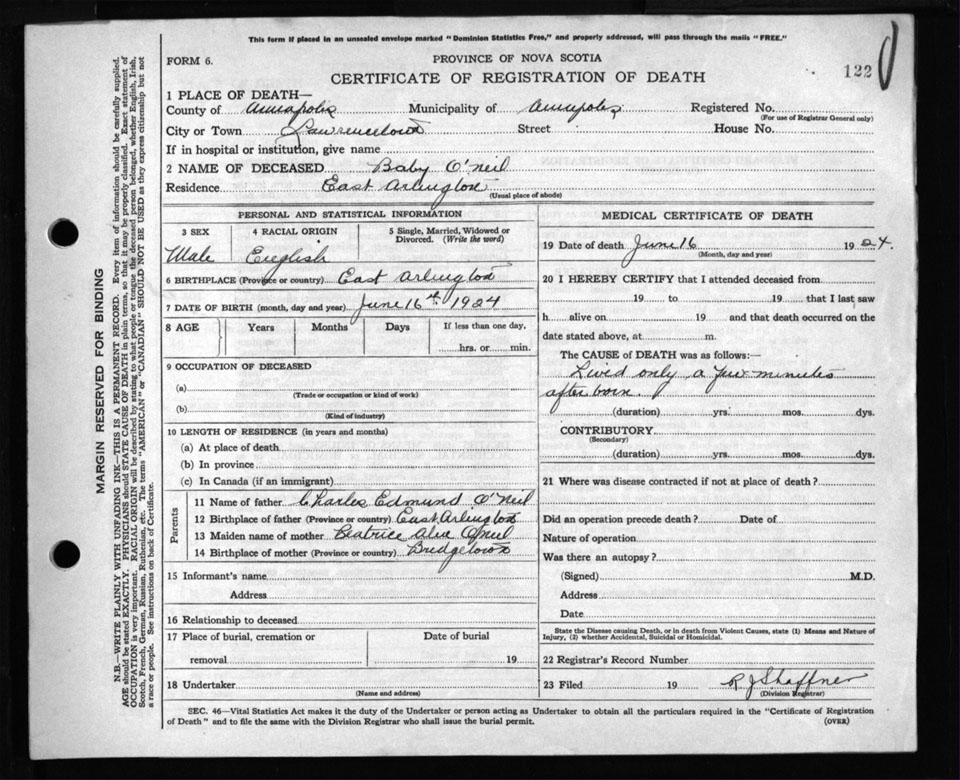 This form if placed in an unsealed envelope marked "Dominion Statistics Free," and properly addressed, will pass through the mails "FREE."
FORM 6.
PROVINCE OF NOVA SCOTIA
CERTIFICATE OF REGISTRATION OF DEATH
122
1 PLACE OF DEATH—
County of Annapolis Municipality of Annapolis Registered No.
(For use of Registrar General only)
City or Town Lawrencetown Street House No.
If in hospital or institution, give name
2 NAME OF DECEASED Baby O'Neil
Residence East Arlington
(Usual place of abode)
PERSONAL AND STATISTICAL INFORMATION
3 SEX 4 RACIAL ORIGIN 5 Single, Married, Widowed or Divorced. (Write the word)
Male English
6 BIRTHPLACE (Province or country) East Arlington
7 DATE OF BIRTH (month, day and year) June 16th 1924
8 AGE Years Months Days If less than one day,
hrs. or min.
9 OCCUPATION OF DECEASED
(a)
(Trade or occupation or kind of work)
(b)
(Kind of industry)
10 LENGTH OF RESIDENCE (in years and months)
(a) At place of death
(b) In province
(c) In Canada (if an immigrant)
Parents
11 Name of father Charles Edmund O'Neil
12 Birthplace of father (Province or country) East Arlington
13 Maiden name of mother Beatrice O'Neil
14 Birthplace of mother (Province or country) Bridgetown
15 Informant's name
Address
16 Relationship to deceased
17 Place of burial, cremation or Date of burial
removal 19
18 Undertaker
(Name and address)
MEDICAL CERTIFICATE OF DEATH
19 Date of death June 16 1924.
(Month, day and year)
20 I HEREBY CERTIFY that I attended deceased from
19 to 19 that I last saw
h alive on 19 and that death occurred on the
date stated above, at m.
The CAUSE of DEATH was as follows:—
Lived only a few minutes
after born.
(duration) yrs. mos. dys.
CONTRIBUTORY
(Secondary)
(duration) yrs. mos. dys.
21 Where was disease contracted if not at place of death?
Did an operation precede death? Date of
Nature of operation
Was there an autopsy?
(Signed) M.D.
Address
Date
State the Disease causing Death, or in death from Violent Causes, state (1) Means and Nature of
Injury, (2) whether Accidental, Suicidal or Homicidal.
22 Registrar's Record Number
23 Filed 19 R J Shaffner
(Division Registrar)
SEC. 46—Vital Statistics Act makes it the duty of the Undertaker or person acting as Undertaker to obtain all the particulars required in the "Certificate of Registration
of Death" and to file the same with the Division Registrar who shall issue the burial permit.
(OVER)
MARGIN RESERVED FOR BINDING
N.B.—WRITE PLAINLY WITH UNFADING INK—THIS IS A PERMANENT RECORD. Every item of information should be carefully supplied.
AGE should be stated EXACTLY. PHYSICIANS should STATE CAUSE OF DEATH in plain terms, so that it may be properly classified. Exact statement of
OCCUPATION is very important. RACIAL ORIGIN will be described by stating to what people or tongue the deceased person belonged, whether English, Irish,
Scotch, French, German, Russian, Ruthenian, etc. The terms "AMERICAN" or "CANADIAN" SHOULD NOT BE USED as they express citizenship but not
a race or people. See instructions on back of Certificate.